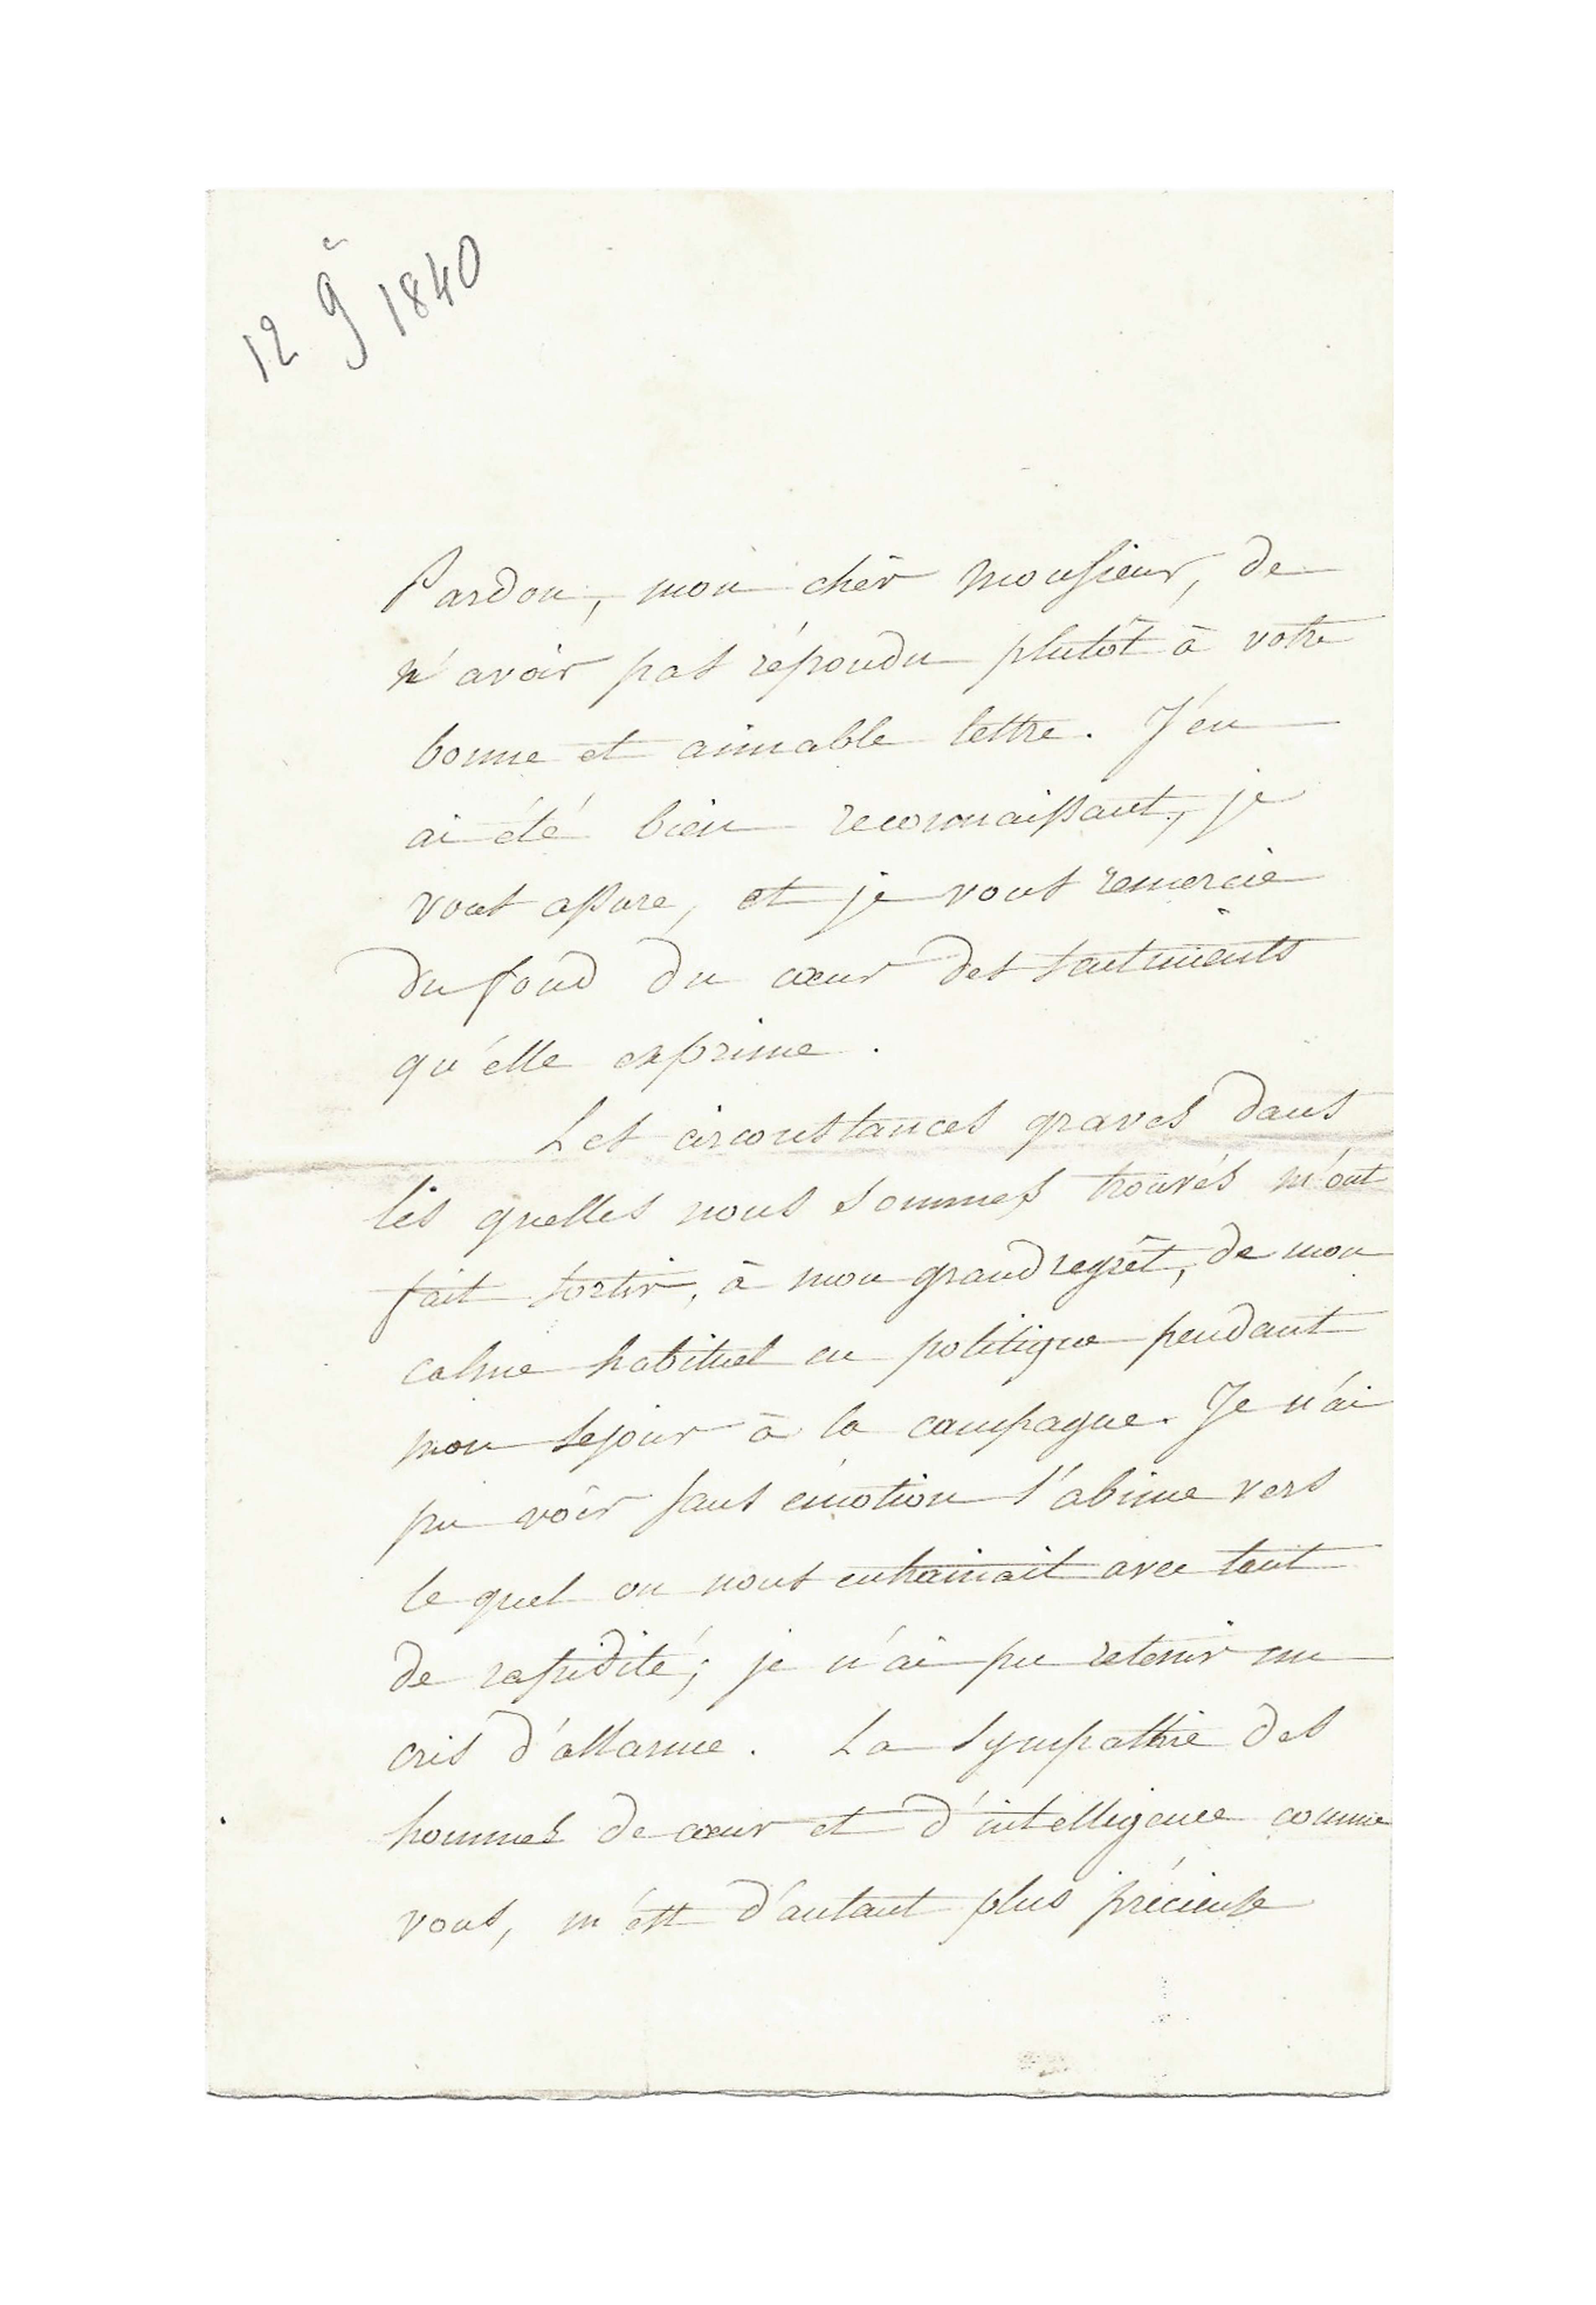 12 9r 1840
Pardon, mon chèr Monsieur, de
n'avoir pas répondu plutôt à votre
bonne et aimable lettre. J'en
ai été bien reconnaissant, je
vous assure, et je vous remercie
du fond du cœur des sentiments
qu'elle exprime.
Les circonstances graves dans
les quelles nous sommes trouvés m'ont
fait sortir, à mon grand regrêt, de mon
calme habituel en politique pendant
mon séjour à la campagne. Je n'ai
pu voir sans émotion l'abime vers
le quel on nous entrainait avec tant
de rapidité; je n'ai pu retenir un
cris d'allarme. La sympathie des
hommes de cœur et d'intelligence comme
vous, m'est d'autant plus précieuse